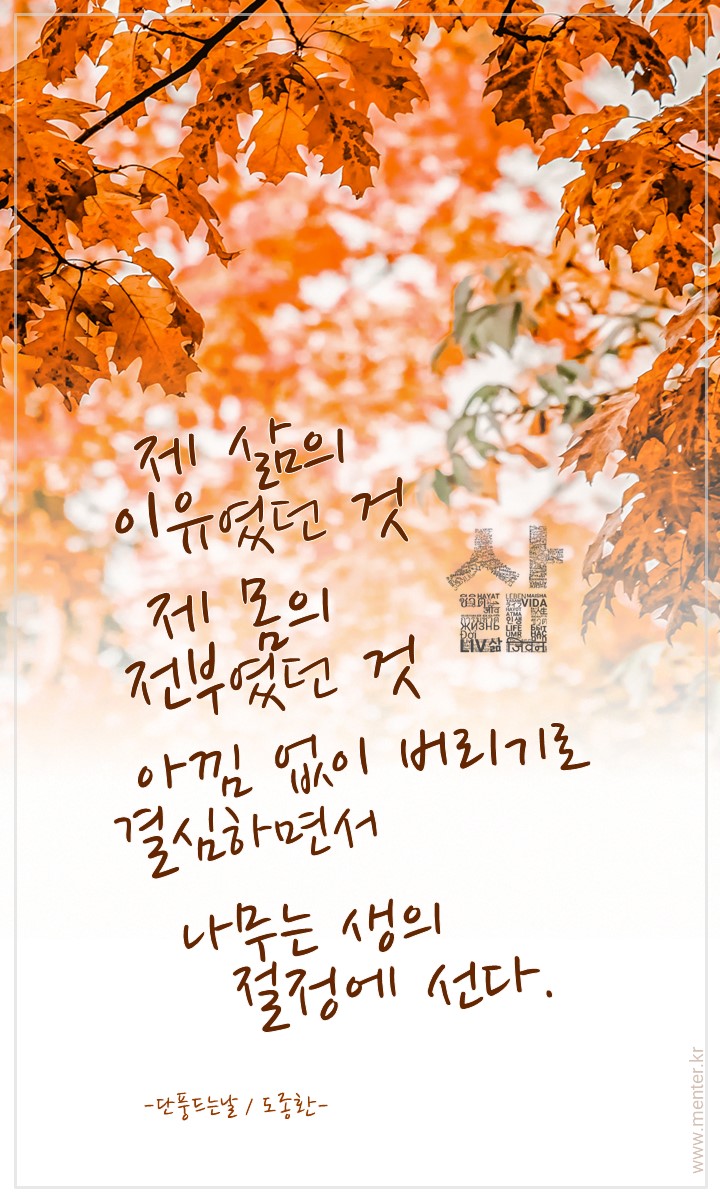 제 삶의
이유였던 것
제 몸의
전부였던 것
아낌 없이 버리기로
결심하면서
나무는 생의
절정에 선다.
-단풍드는날 / 도종환-
삶
HAYAT
LEBEN MAISHA
VIDA
ЖИЗНЬ
ATMA
人生
LIFE
UMR
БЫТ
Đời
LIV 삶
जिवन
www.menter.kr